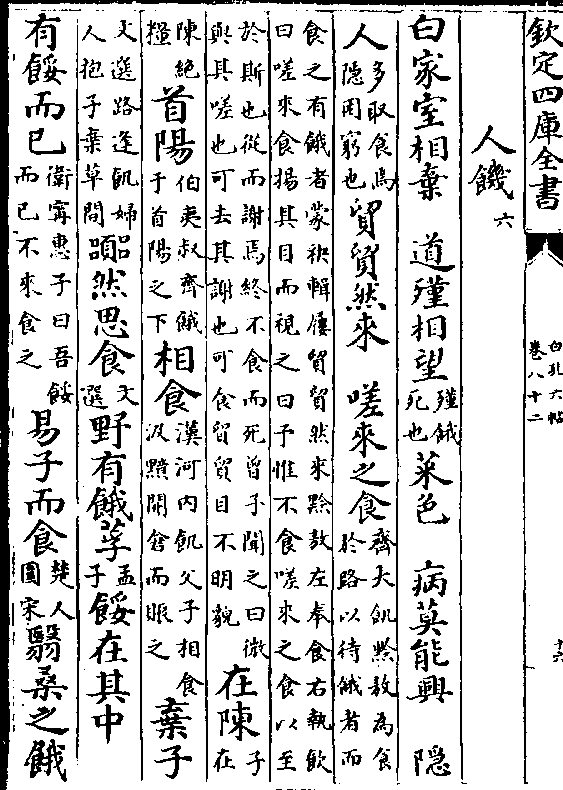 欽定四庫全書
白孔六帖
卷八十二
十六
人饑 六
白家室相棄 道殣相望 殣餓死也 菜色 病莫能興 隱
人 多取食焉隱困窮也 貿貿然來 嗟來之食 齊大飢黔敖為食於路以待餓者而
食之有餓者蒙袂輯屨貿貿然來黔敖左奉食右執飲
曰嗟來食揚其目而視之曰予惟不食嗟來之食以至
於斯也從而謝焉終不食而死曾子聞之曰微
與其嗟也可去其謝也可食貿貿目不明貌
在陳 子在
陳絕糧 首陽 伯夷叔齊餓于首陽之下 相食 漢河内飢父子相食汲黯開倉而賑之 棄子
文選路逢飢婦人抱子棄草間 然思食 文選 野有餓莩 孟子 餒在其中
有餒而已 衛甯惠子曰吾餒而已不來食之 易子而食 楚人圍宋 翳桑之餓